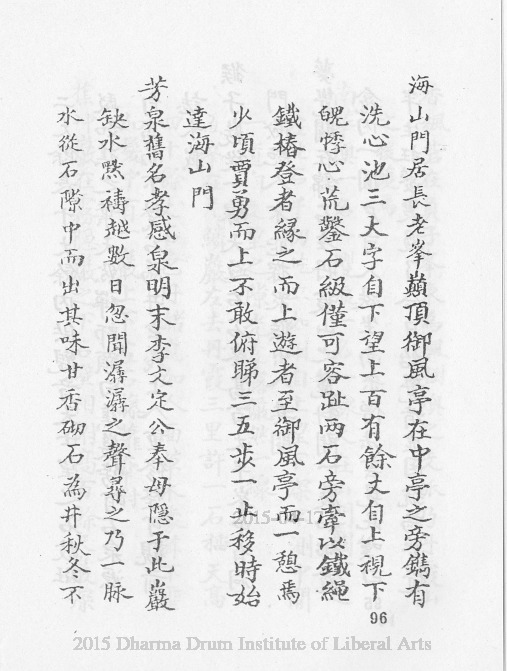 海山門居長老峯巔頂御風亭在中亭之旁鐫有
洗心池三大字自下望上百有餘丈自上視下
魄悸心慌鑿石級僅可容趾兩石旁牽以鐵繩
鐵樁登者緣之而上遊者至御風亭而一憩焉
少頃賈勇而上不敢俯睇三五步一止移時始
達海山門
芳泉舊名孝感泉明末李文定公奉母隱于此巖
缺水默禱越數日忽聞潺潺之聲尋之乃一脉
水從石隙中而出其味甘香砌石為井秋冬不
96
2015 Dharma Drum Institute of Liberal Arts